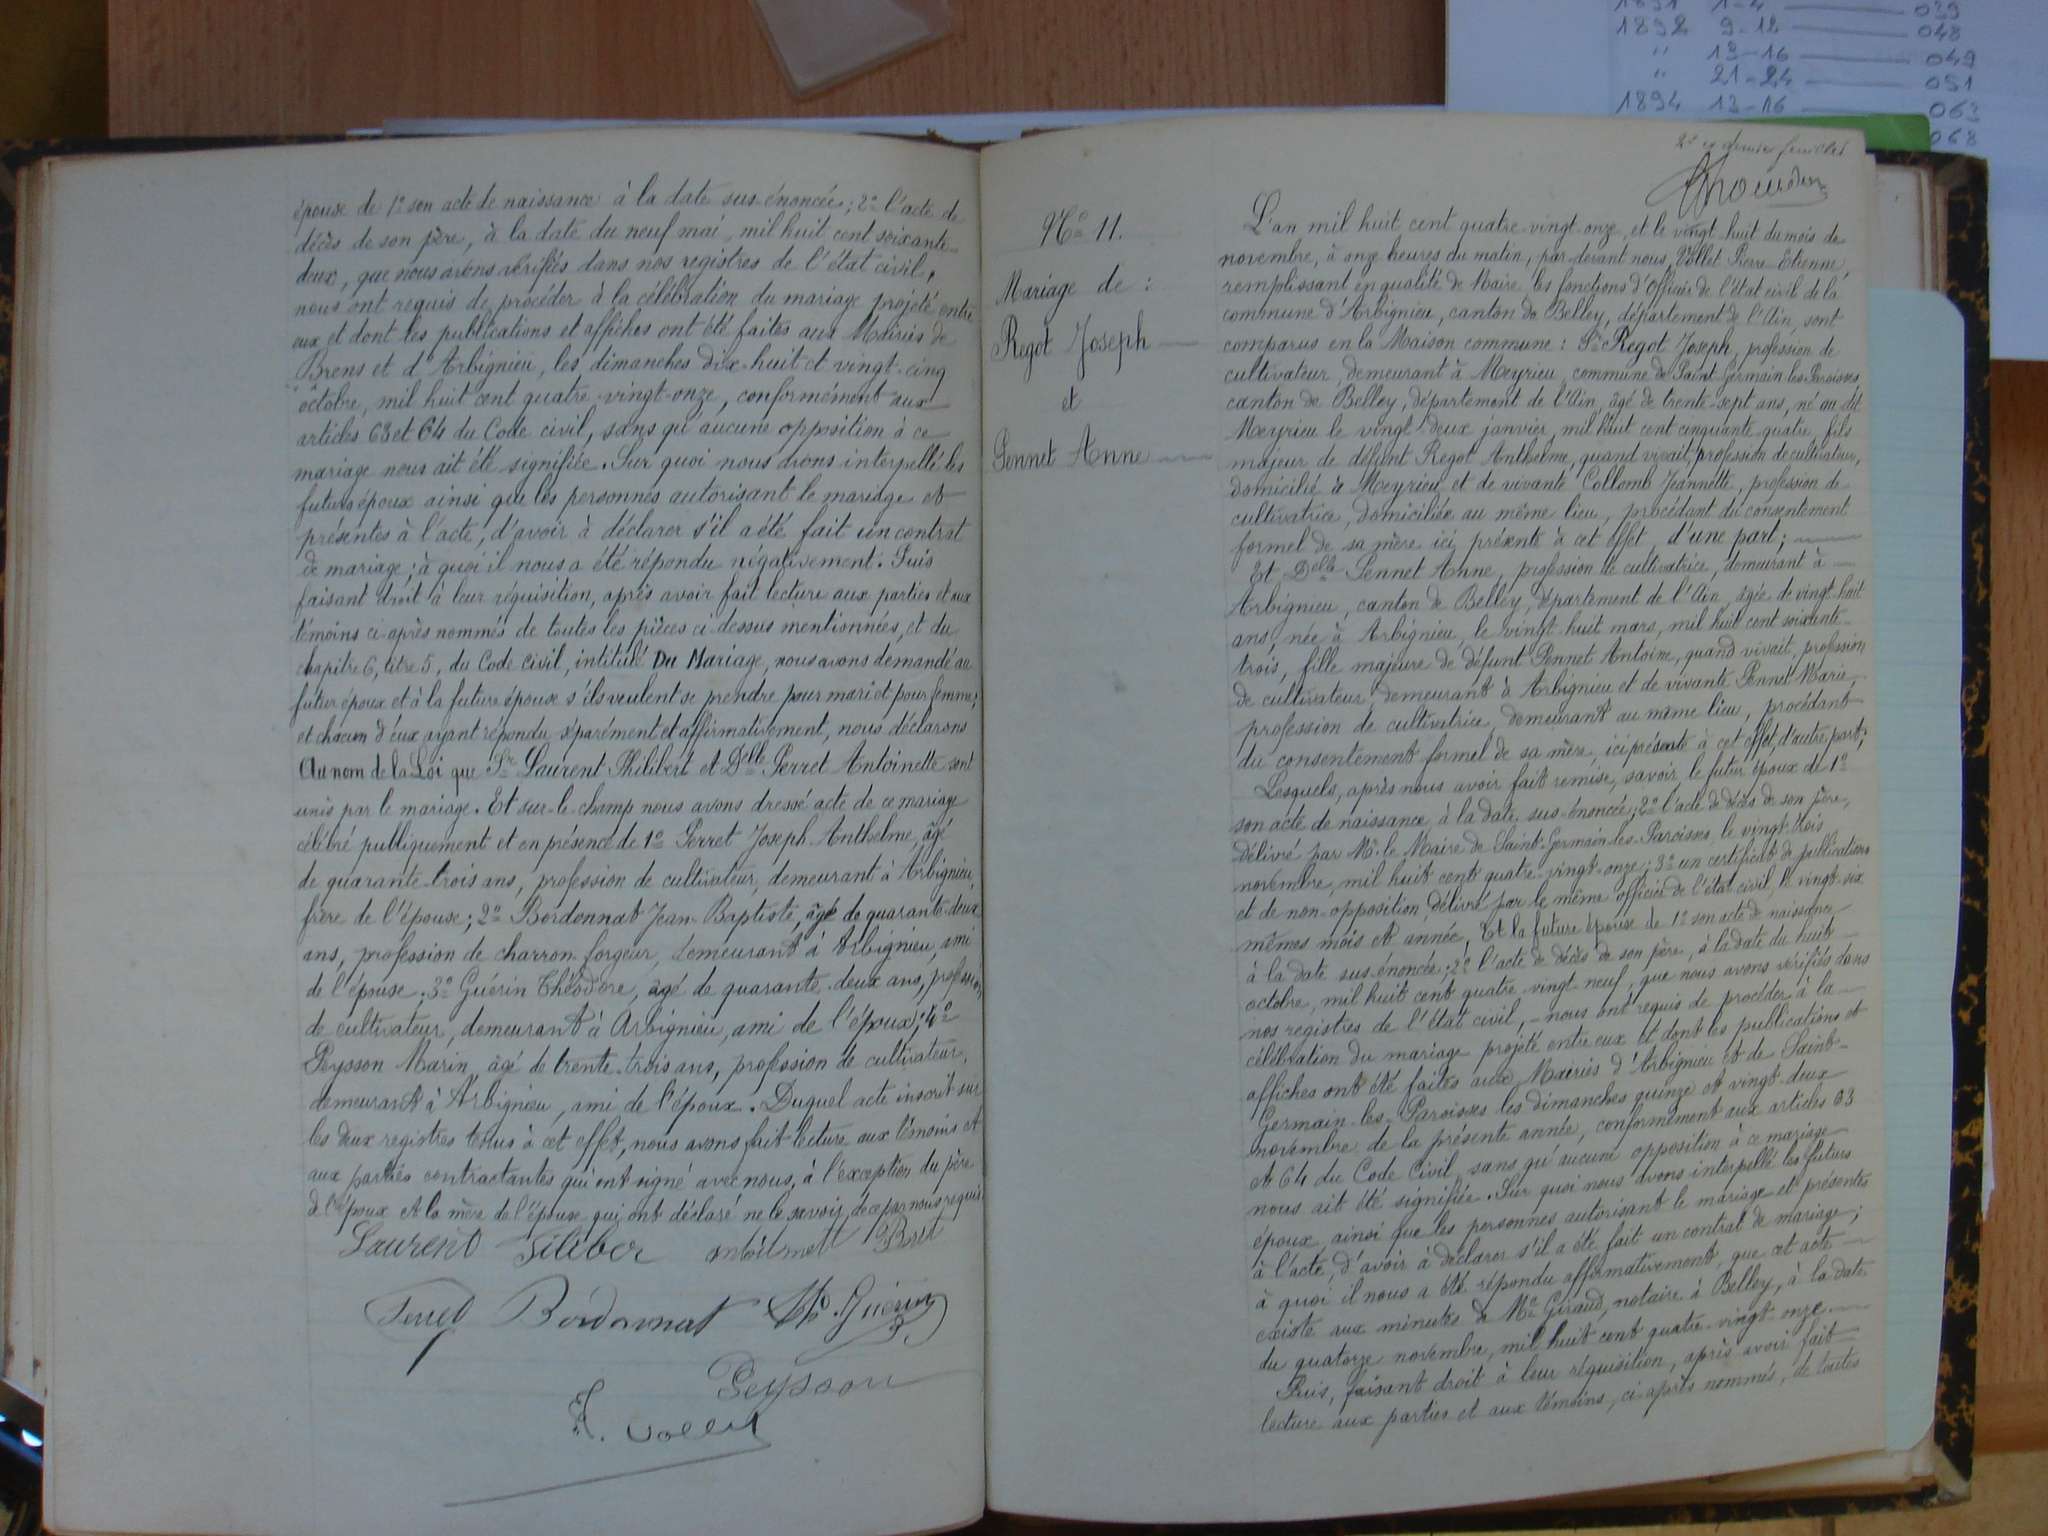 1891 1-4 — 039
1892 9-12 — 048
" 13-16 — 049
" 21-24 — 051
1894 13-16 — 063
068
épouse de 1º son acte de naissance à la date sus-énoncée; 2º l'acte de
décès de son père, à la date du neuf mai, mil huit cent soixante-
deux, que nous avons vérifiés dans nos registres de l'état civil,
nous ont requis de procéder à la célébration du mariage projeté entre
eux et dont les publications et affiches ont été faites aux Mairies de
Brens et d'Arbignieu, les dimanches dix-huit et vingt-cinq
octobre, mil huit cent quatre-vingt-onze, conformément aux
articles 63 et 64 du Code civil, sans qu'aucune opposition à ce
mariage nous ait été signifiée. Sur quoi nous avons interpellé les
futurs époux ainsi que les personnes autorisant le mariage et
présentes à l'acte, d'avoir à déclarer s'il a été fait un contrat
de mariage; à quoi il nous a été répondu négativement. Puis
faisant droit à leur réquisition, après avoir fait lecture aux parties et aux
témoins ci-après nommés de toutes les pièces ci-dessus mentionnées, et du
chapitre 6, titre 5, du Code civil, intitulé Du Mariage, nous avons demandé au
futur époux et à la future épouse s'ils veulent se prendre pour mari et pour femme;
et chacun d'eux ayant répondu séparément et affirmativement, nous déclarons
Au nom de la Loi que Sr Laurent Philibert et Delle Perret Antoinette sont
unis par le mariage. Et sur-le-champ nous avons dressé acte de ce mariage
célébré publiquement et en présence de 1º Perret Joseph-Anthelme, âgé
de quarante-trois ans, profession de cultivateur, demeurant à Arbignieu,
frère de l'épouse; 2º Bordonnat Jean-Baptiste, âgé de quarante-deux
ans, profession de charron-forgeur, demeurant à Arbignieu, ami
de l'épouse. 3º Guérin Théodore, âgé de quarante-deux ans, profession
de cultivateur, demeurant à Arbignieu, ami de l'époux; 4º
Peysson Marin, âgé de trente-trois ans, profession de cultivateur,
demeurant à Arbignieu, ami de l'époux. Duquel acte inscrit sur
les deux registres tenus à cet effet, nous avons fait lecture aux témoins et
aux parties contractantes qui ont signé avec nous, à l'exception du père
de l'époux et la mère de l'épouse qui ont déclaré ne le savoir, de ce par nous requis
Laurent Filiber
Perret Bordonnat Th. Guérin
Peysson
E. Vollet
2e et dernier feuillet
Nº 11.
Mariage de :
Regot Joseph
et
Pennet Anne
L'an mil huit cent quatre-vingt-onze, et le vingt-huit du mois de
novembre, à onze heures du matin, par-devant nous, Vollet Pierre-Etienne,
remplissant en qualité de Maire les fonctions d'Officier de l'état civil de la
commune d'Arbignieu, canton de Belley, département de l'Ain, sont
comparus en la Maison commune : Sr Regot Joseph, profession de
cultivateur, demeurant à Meyrieu, commune de Saint-Germain-les-Paroisses,
canton de Belley, département de l'Ain, âgé de trente-sept ans, né au dit
Meyrieu le vingt-deux janvier, mil huit cent cinquante-quatre, fils
majeur de défunt Regot Anthelme, quand vivait, profession de cultivateur,
domicilié à Meyrieu, et de vivante Collomb Jeannette, profession de
cultivatrice, domiciliée au même lieu, procédant du consentement
formel de sa mère ici présente à cet effet, d'une part;
Et Delle Pennet Anne, profession de cultivatrice, demeurant à
Arbignieu, canton de Belley, département de l'Ain, âgée de vingt-huit
ans, née à Arbignieu, le vingt-huit mars, mil huit cent soixante-
trois, fille majeure de défunt Pennet Antoine, quand vivait, profession
de cultivateur, demeurant à Arbignieu et de vivante Pennet Marie,
profession de cultivatrice, demeurant au même lieu, procédant
du consentement formel de sa mère, ici présente à cet effet, d'autre part;
Lesquels, après nous avoir fait remise, savoir le futur époux de 1º
son acte de naissance, à la date sus-énoncée; 2º l'acte de décès de son père,
délivré par Mr. le Maire de Saint-Germain-les-Paroisses, le vingt-trois
novembre, mil huit cent quatre-vingt-onze; 3º un certificat de publications
et de non-opposition, délivré par le même officier de l'état civil, le vingt-six
mêmes mois et année, Et la future épouse de 1º son acte de naissance
à la date sus-énoncée; 2º l'acte de décès de son père, à la date du huit
octobre, mil huit cent quatre-vingt-neuf, que nous avons vérifiés dans
nos registres de l'état civil, - nous ont requis de procéder à la
célébration du mariage projeté entre eux et dont les publications et
affiches ont été faites aux Mairies d'Arbignieu et de Saint-
Germain-les-Paroisses les dimanches quinze et vingt-deux
novembre de la présente année, conformément aux articles 63
et 64 du Code Civil, sans qu'aucune opposition à ce mariage
nous ait été signifiée. Sur quoi nous avons interpellé les futurs
époux ainsi que les personnes autorisant le mariage et présentes
à l'acte, d'avoir à déclarer s'il a été fait un contrat de mariage;
à quoi il nous a été répondu affirmativement, que cet acte
existe aux minutes de Me Giraud, notaire à Belley, à la date
du quatorze novembre, mil huit cent quatre-vingt-onze
Puis, faisant droit à leur réquisition, après avoir fait
lecture aux parties et aux témoins, ci-après nommés, de toutes